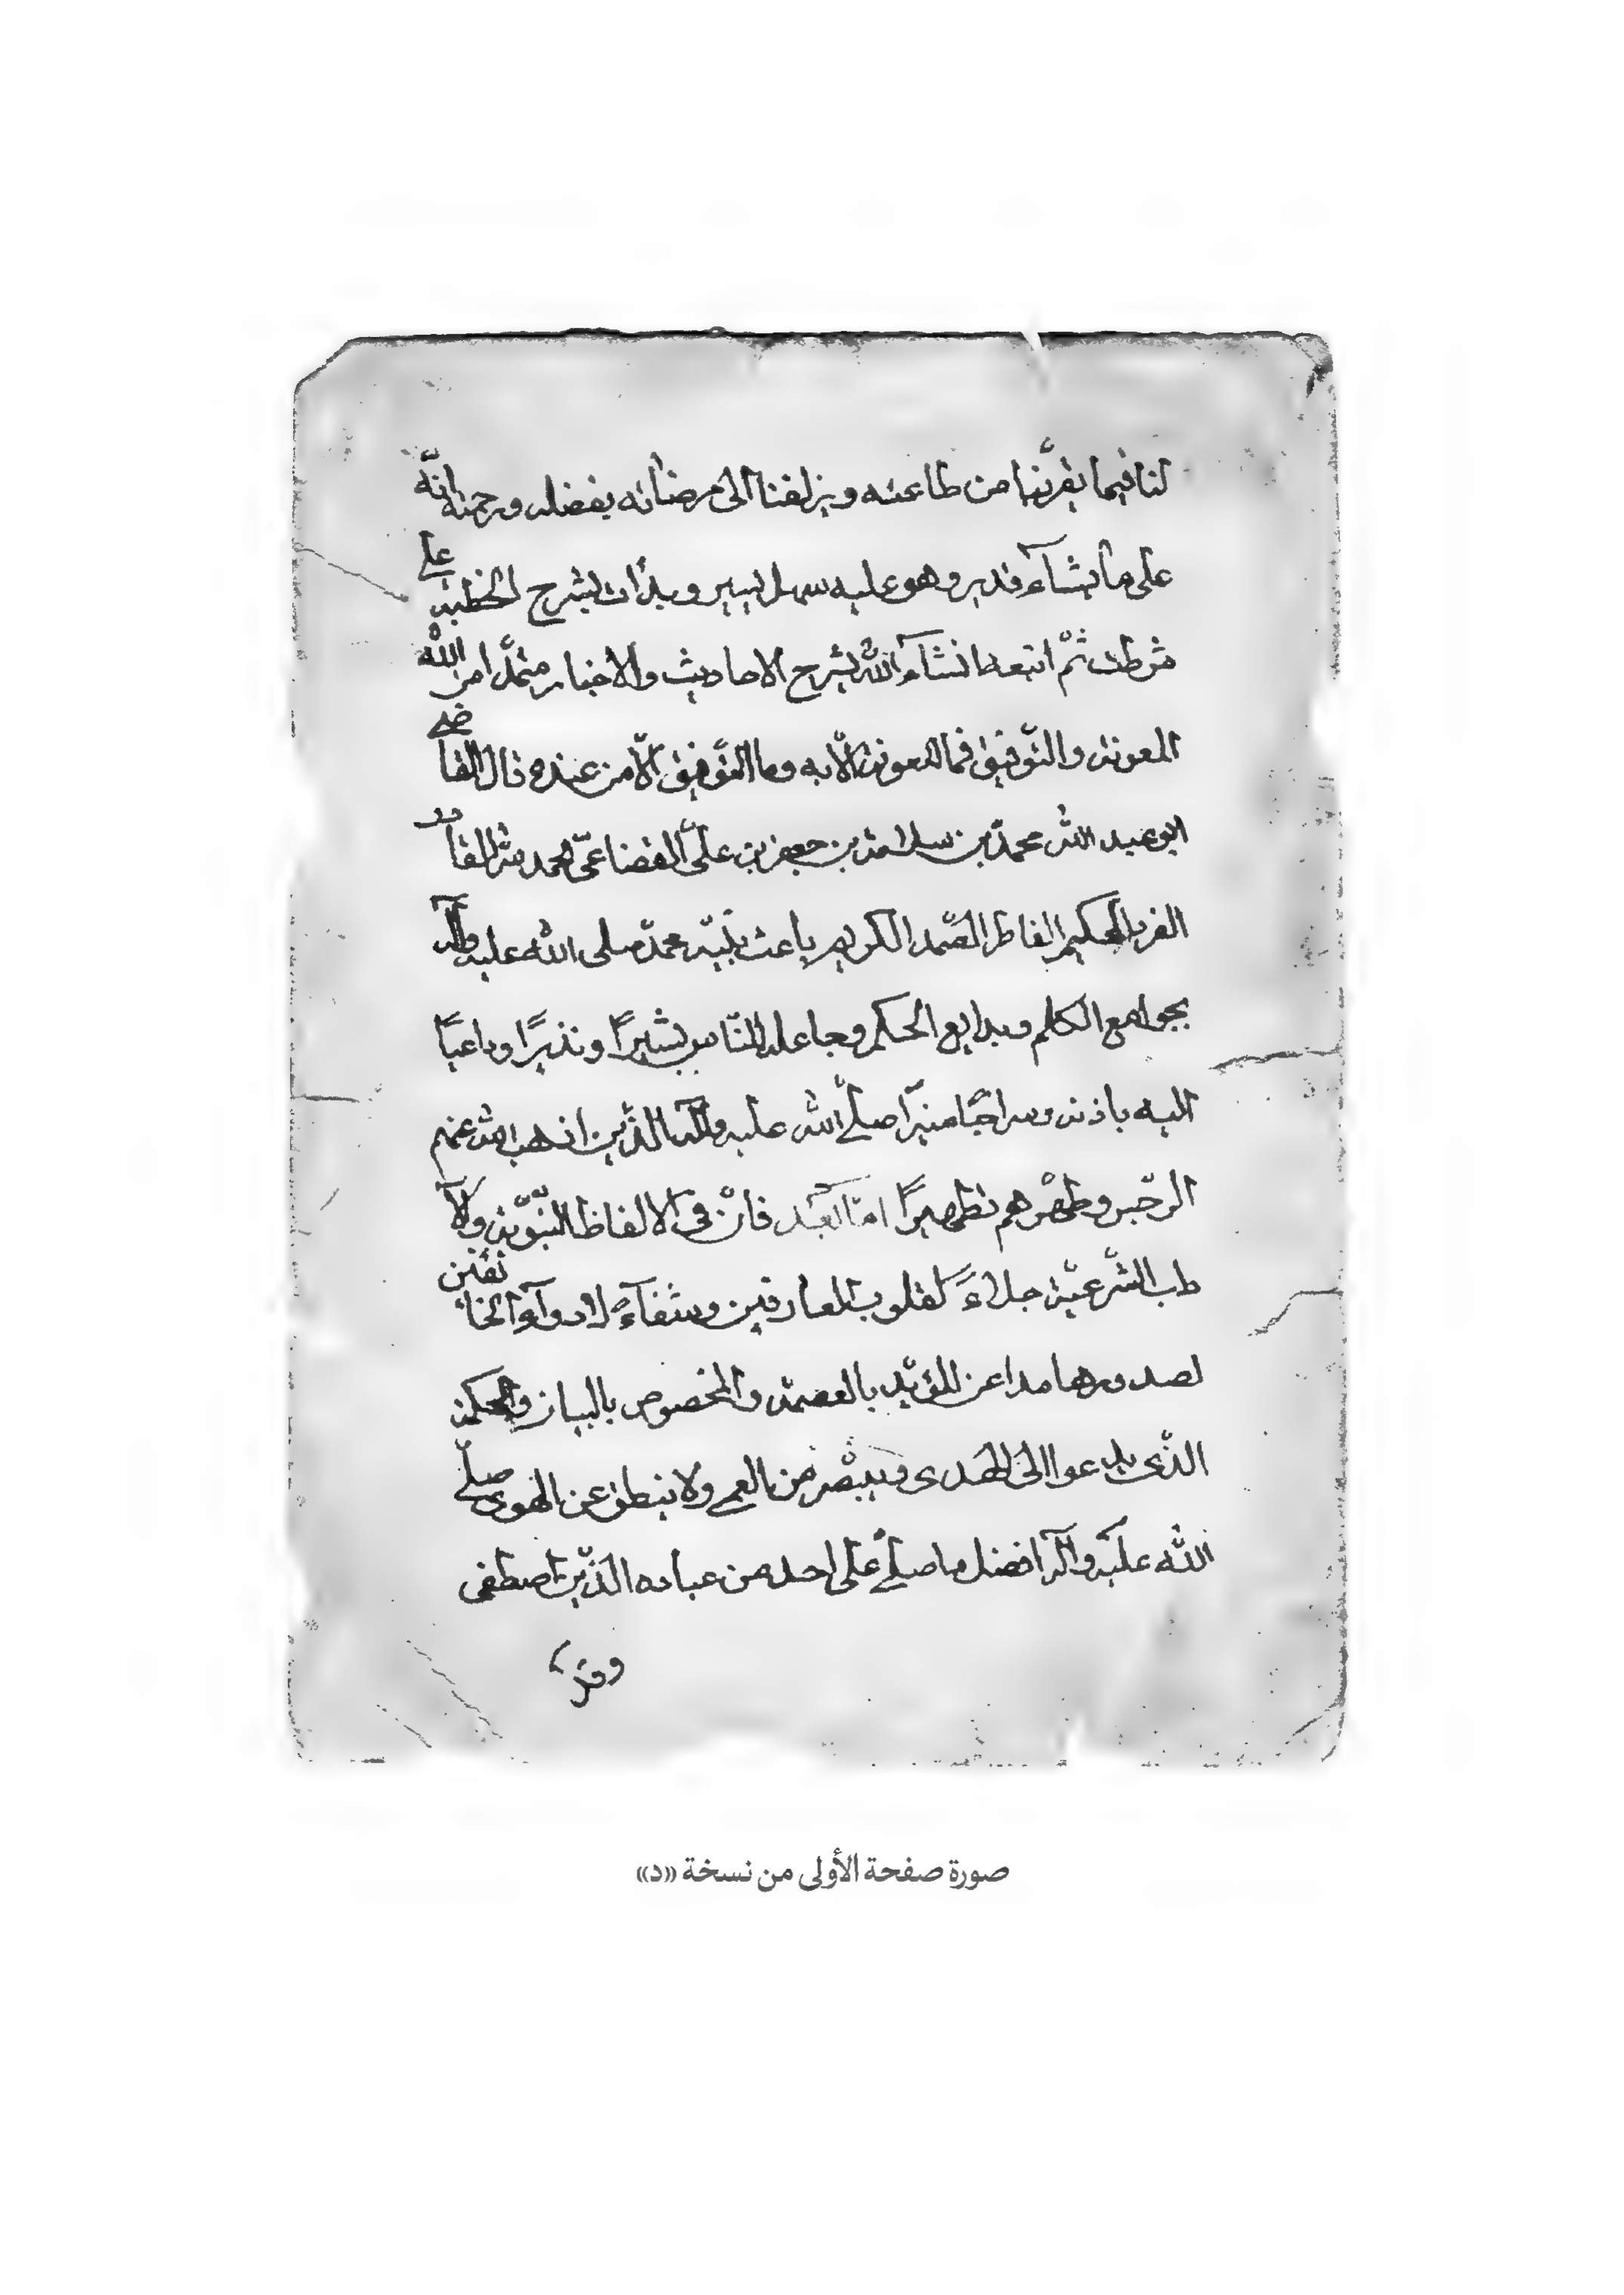 لنا فيما يقرّبنا من طاعته ويزلفنا الى مرضاته بفضله ورحمته انّه
على ما يشآء قدير وهو عليه سهل يسير وبدأت بشرح الخطبة علے
شرطت ثمّ اتبعها انشآء اللّه بشرح الاحاديث والاخبار متمدّا من اللّه
المعونة والتّوفيق فما المعونة الّا به وما التّوفيق الّا من عنده قال القاضے
ابو عبد اللّه محمّد بن سلامة بن جعفر بن علىّ القضاعىّ الحمد للّه القادر
الفرد الحكيم الفاطر الصّمد الكريم باعث نبيّه محمّد صلى اللّه عليه وآله
بجوامع الكلم وبدايع الحكم وجاعله للنّاس بشيرًا ونذيرًا وداعيًا
اليه باذنه وسراجًا منيرًا صلّے اللّه عليه وآله الّذين اذهب اللّه عنهم
الرّجس وطهّرهم تطهيرًا امّا بعد فانّ فى الالفاظ النّبويّة والآ
طب الشّرعيّة جلاءً لقلوب العارفين وشفآءً لادوآء الخائفين
لصدورها مداعن المؤيّد بالعصمة والمخصوص بالبيان والحكمة
الّذى يدعوا الى الهدى ويبصّر من العمے ولا ينطق عن الهوى صلّے
اللّه عليه وآله افضل ما صلّے على احد من عباده الّذين اصطفى
صورة صفحة الأولى من نسخة «د»